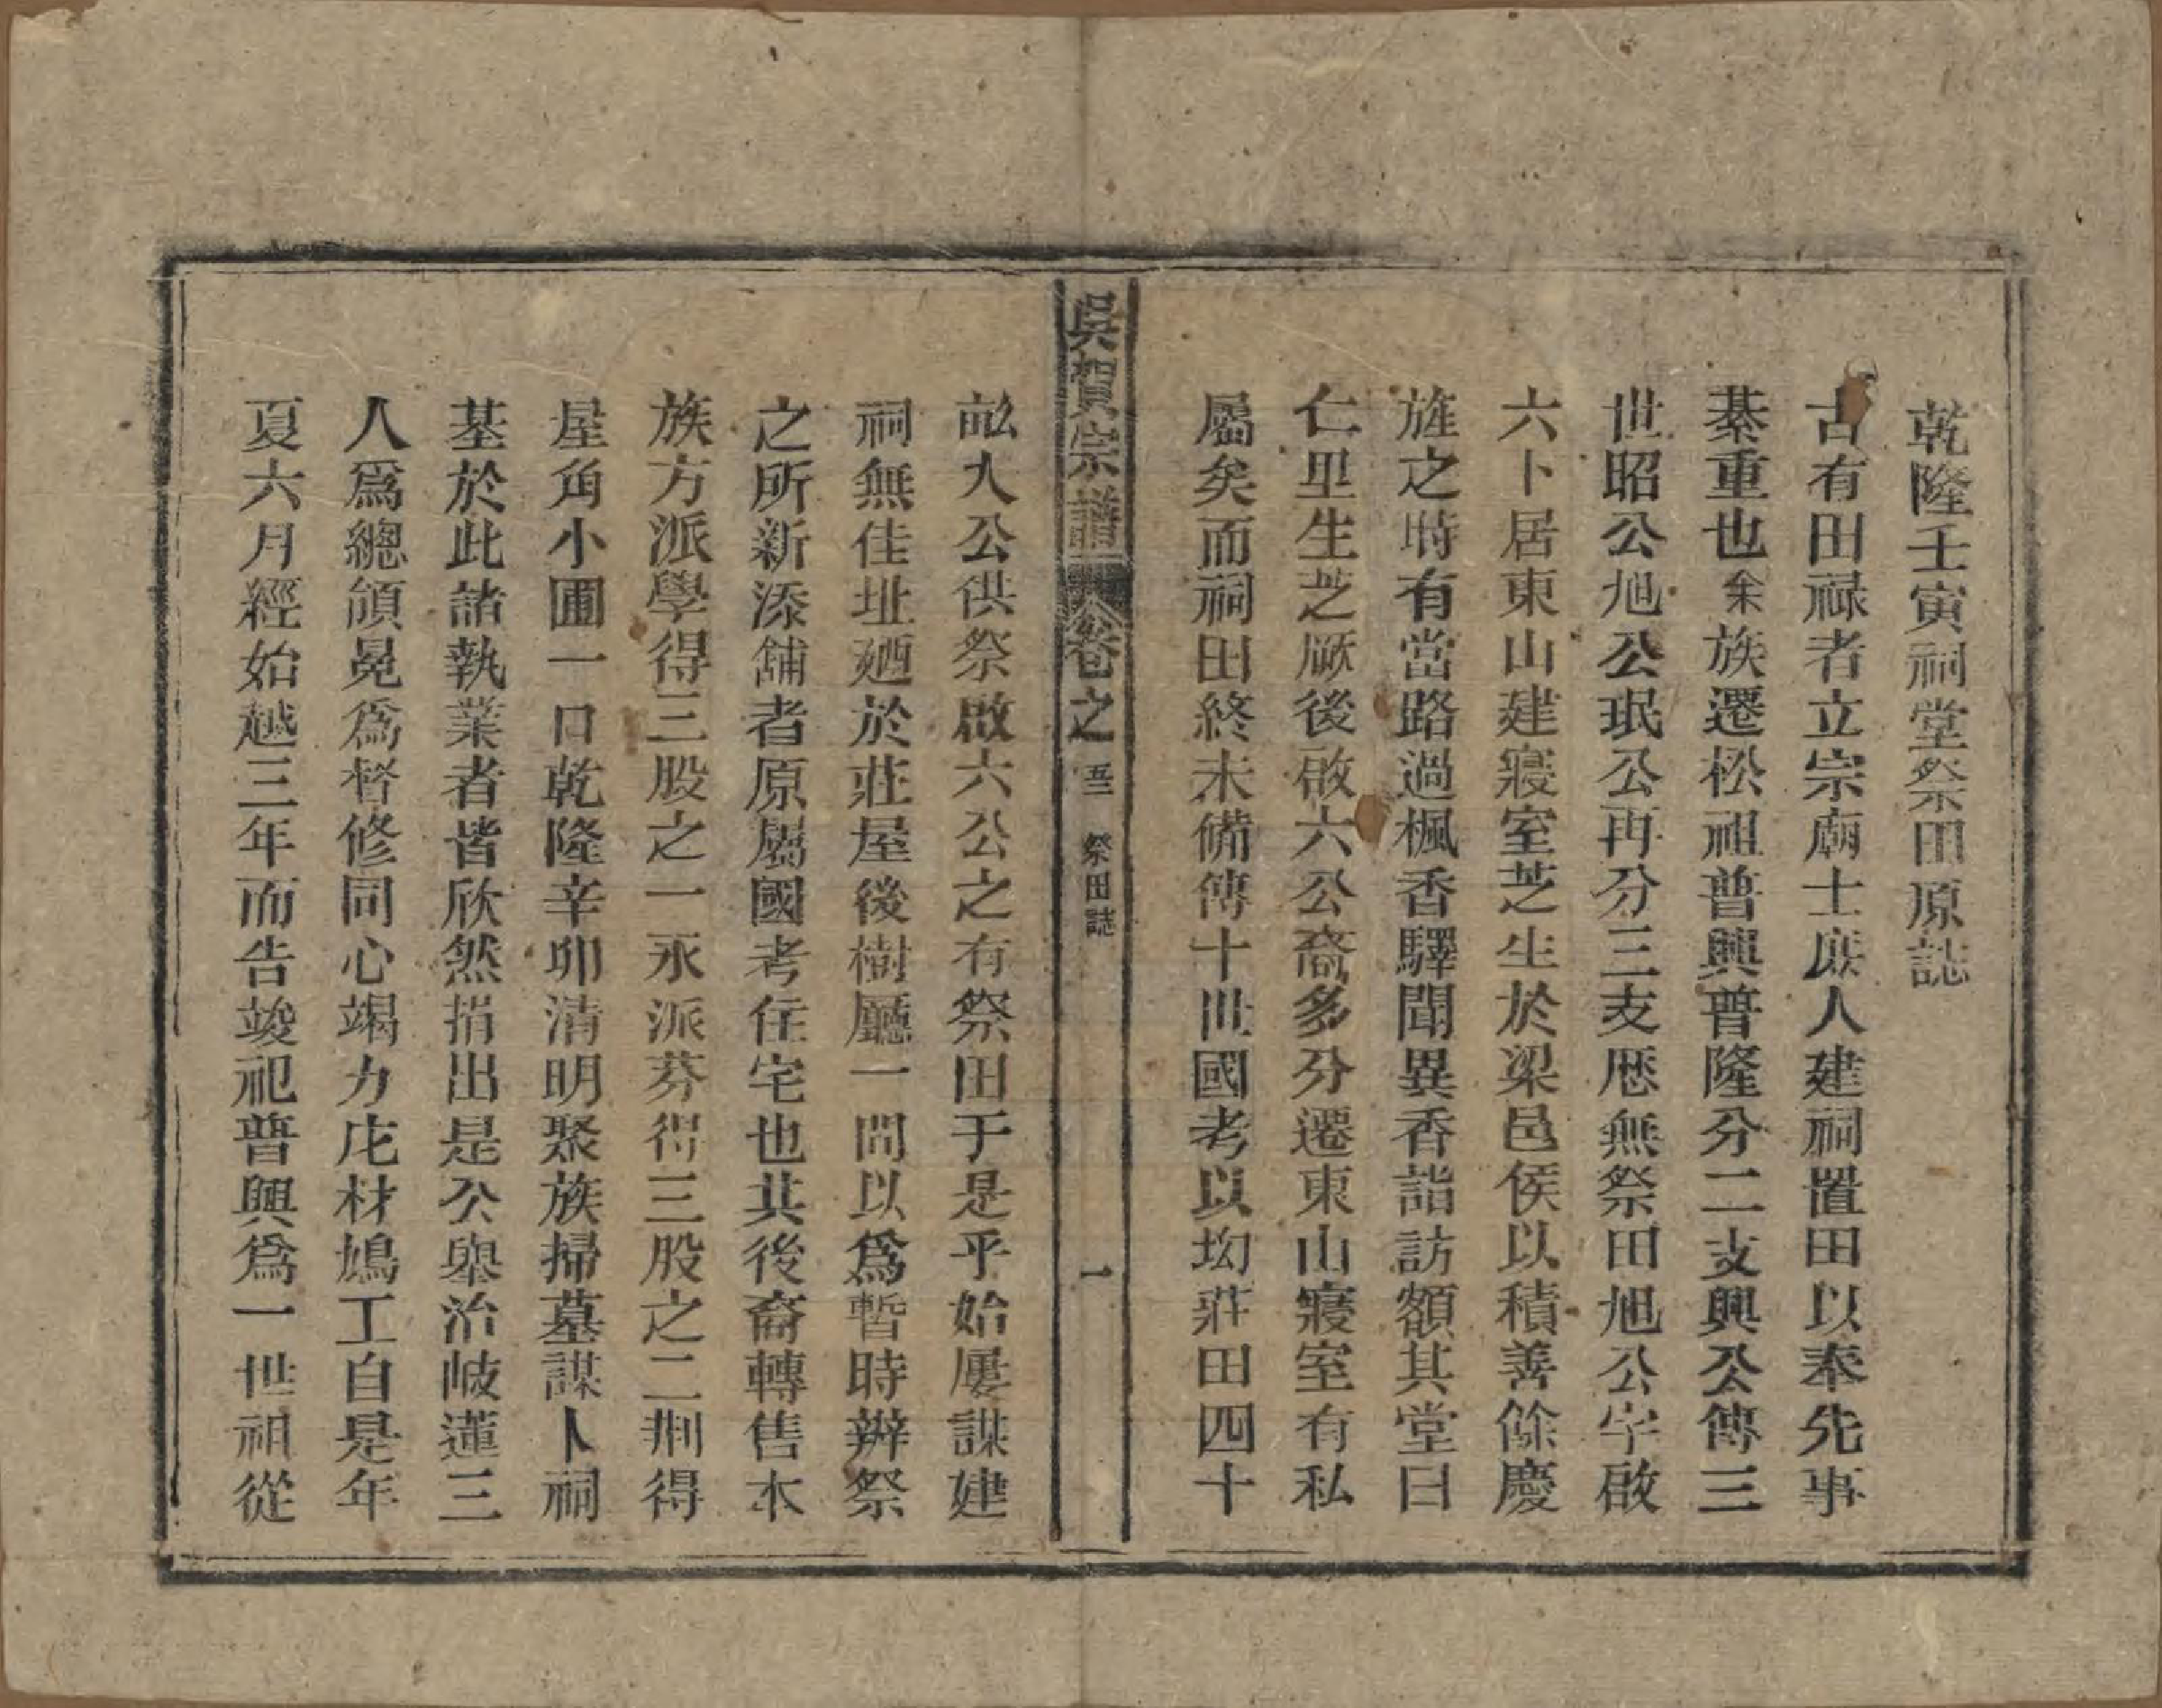 乾隆壬寅祠堂祭田原誌
古有田祿者立宗廟士庶人建祠置田以奉先事
綦重也余族遷松祖普興普隆分二支興公傳三
世昭公旭公珉公再分三支歷無祭田旭公字啟
六卜居東山建寢室芝生於梁邑侯以積善餘慶
旌之時有當路過楓香驛聞異香詣訪額其堂曰
仁里生芝厥後啟六公裔多分遷東山寢室有私
屬矣而祠田終未備傳十世國考以坳莊田四十
吳賀宗譜
卷之
五
祭田誌
一
畝大公供祭啟六公之有祭田于是乎始屢謀建
祠無佳址廼於莊屋後樹廳一間以爲暫時辦祭
之所新添舖者原屬國考住宅也其後裔轉售本
族方派學得三股之一永派芬得三股之二荆得
屋角小圃一口乾隆辛卯清明聚族掃墓謀卜祠
基於此諸執業者皆欣然捐出是公舉治岐蓮三
人爲總頒晃爲督修同心竭力庀材鳩工自是年
夏六月經始越三年而告竣祀普興爲一世祖從